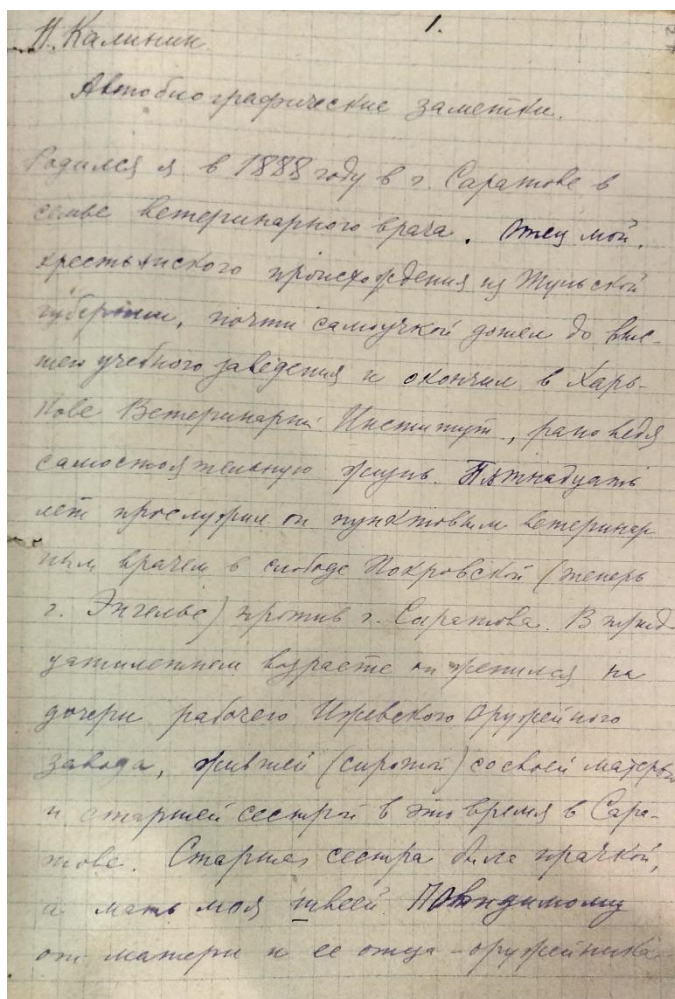 Н. Калинин.
1.
Автобиографические заметки.
Родился я в 1888 году в г. Саратове в
семье ветеринарного врача. Отец мой,
крестьянского происхождения из Тульской
губернии, почти самоучкой дошел до выс-
шего учебного заведения и окончил в Харь-
кове Ветеринарный Институт, рано ведя
самостоятельную жизнь. Пятнадцать
лет прослужил он пунктовым ветеринар
ным врачем в слободе Покровской (теперь
г. Энгельс) против г. Саратова. В трид
цатилетнем возрасте он женился на
дочери рабочего Ижевского Оружейного
завода, жившей (сиротой) со своей матерью
и старшей сестрой в это время в Сара-
тове. Старшая сестра была прачкой,
а мать моя швеей. Повидимому
от матери и ее отца - оружейника